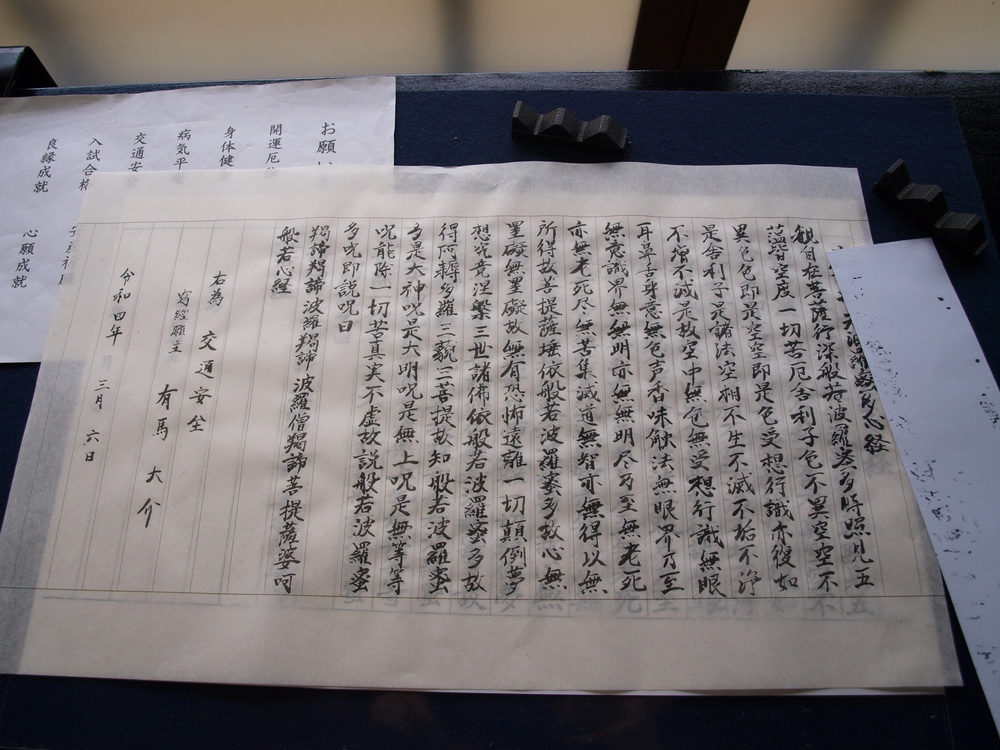 波羅蜜多心経
観自在菩薩行深般若波羅蜜多時照見五
蘊皆空度一切苦厄舎利子色不異空空不
異色色即是空空即是色受想行識亦復如
是舎利子是諸法空相不生不滅不垢不浄
不増不減是故空中無色無受想行識無眼
耳鼻舌身意無色声香味触法無眼界乃至
無意識界無無明亦無無明尽乃至無老死
亦無老死尽無苦集滅道無智亦無得以無
所得故菩提薩埵依般若波羅蜜多故心無
罣礙無罣礙故無有恐怖遠離一切顛倒夢
想究竟涅槃三世諸佛依般若波羅蜜多故
得阿耨多羅三藐三菩提故知般若波羅蜜
多是大神呪是大明呪是無上呪是無等等
呪能除一切苦真実不虚故説般若波羅蜜
多呪即説呪曰
羯諦羯諦波羅羯諦波羅僧羯諦菩提薩婆呵
般若心経
右為 交通安全
写経願主 有馬大介
令和四年 三月 六日
お願い
開運厄
身体健
病気平
交通安
入試合格
良縁成就
心願成就